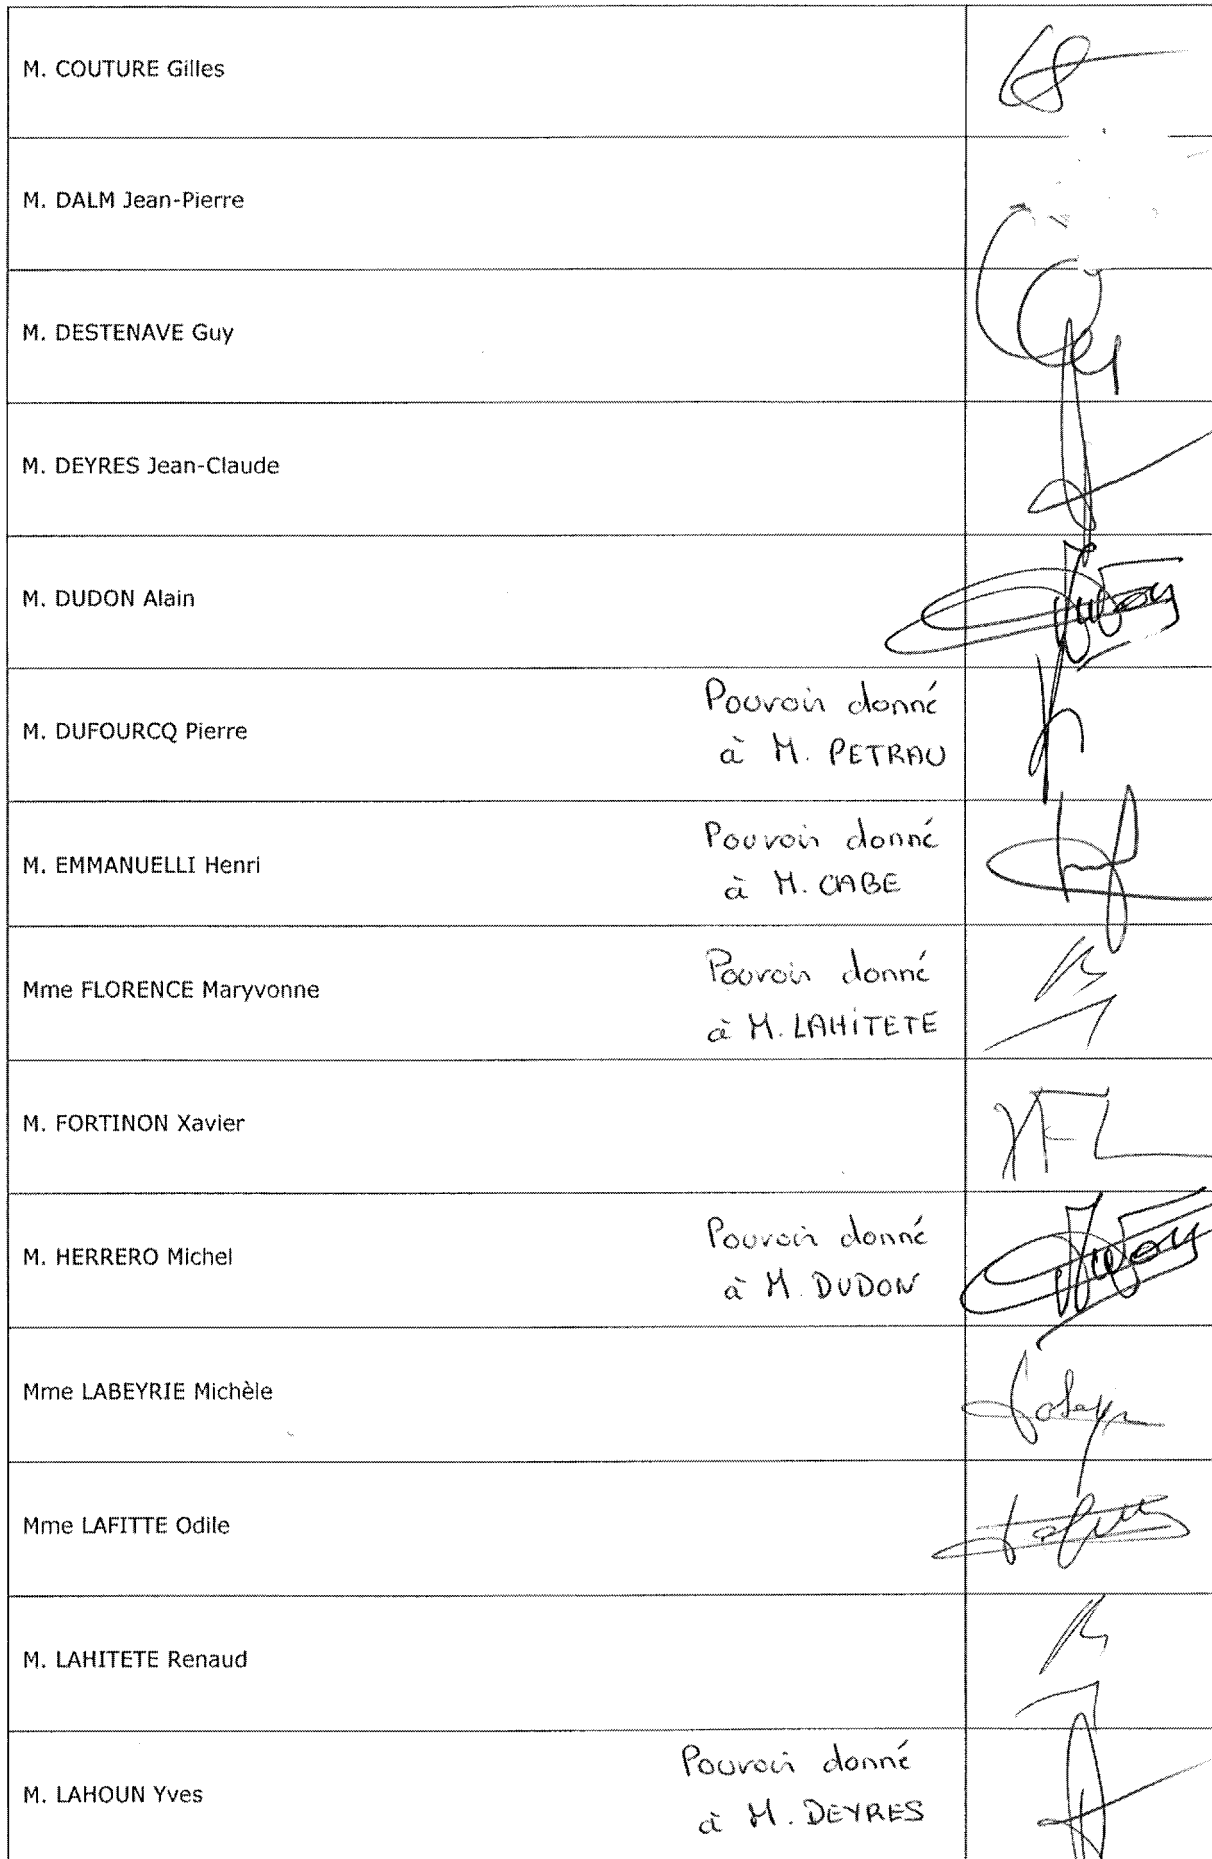 M. COUTURE Gilles
M. DALM Jean-Pierre
M. DESTENAVE Guy
M. DEYRES Jean-Claude
M. DUDON Alain
M. DUFOURCQ Pierre
Pouvoir donné
à M. PETRAU
M. EMMANUELLI Henri
Pouvoir donné
à M. CABE
Mme FLORENCE Maryvonne
Pouvoir donné
à M. LAHITETE
M. FORTINON Xavier
M. HERRERO Michel
Pouvoir donné
à M. DUDON
Mme LABEYRIE Michèle
Mme LAFITTE Odile
M. LAHITETE Renaud
M. LAHOUN Yves
Pouvoir donné
à M. DEYRES